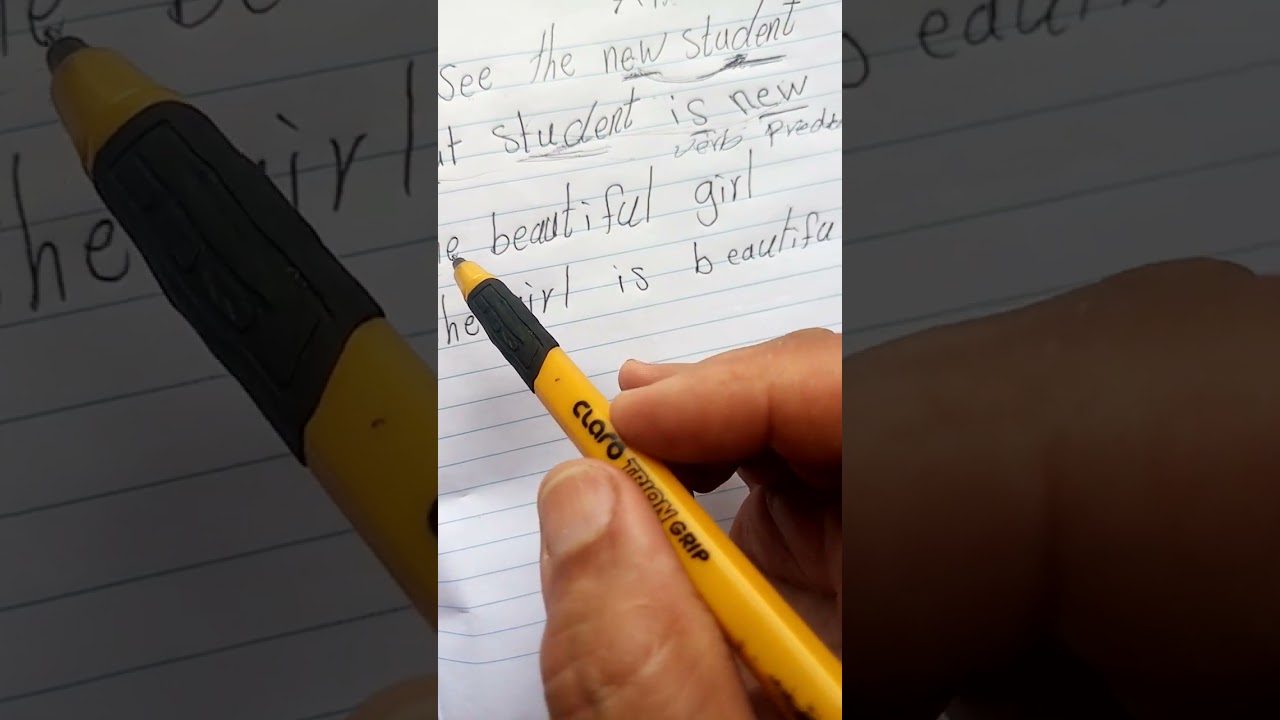 see the new student
student is new
verb
beautiful girl
is beautifu
CLARO TRION GRIP